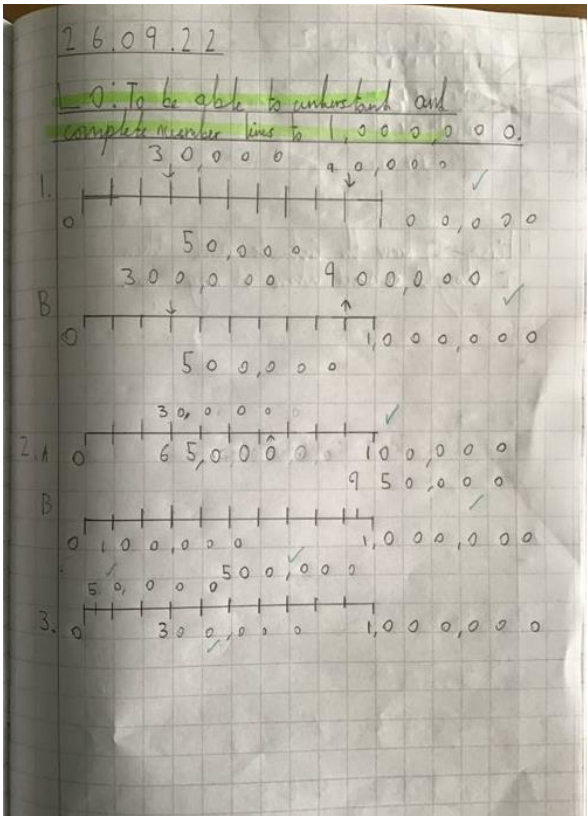 26.09.22
LO: To be able to understand and
complete number lines to 1,000,000.
30,000 90,000
1.
0 100,000
50,000
300,000 900,000
B
0 1,000,000
500,000
30,000
2.A 0 65,000 100,000
950,000
B
0 100,000 1,000,000
500,000
50,000
3. 0 300,000 1,000,000